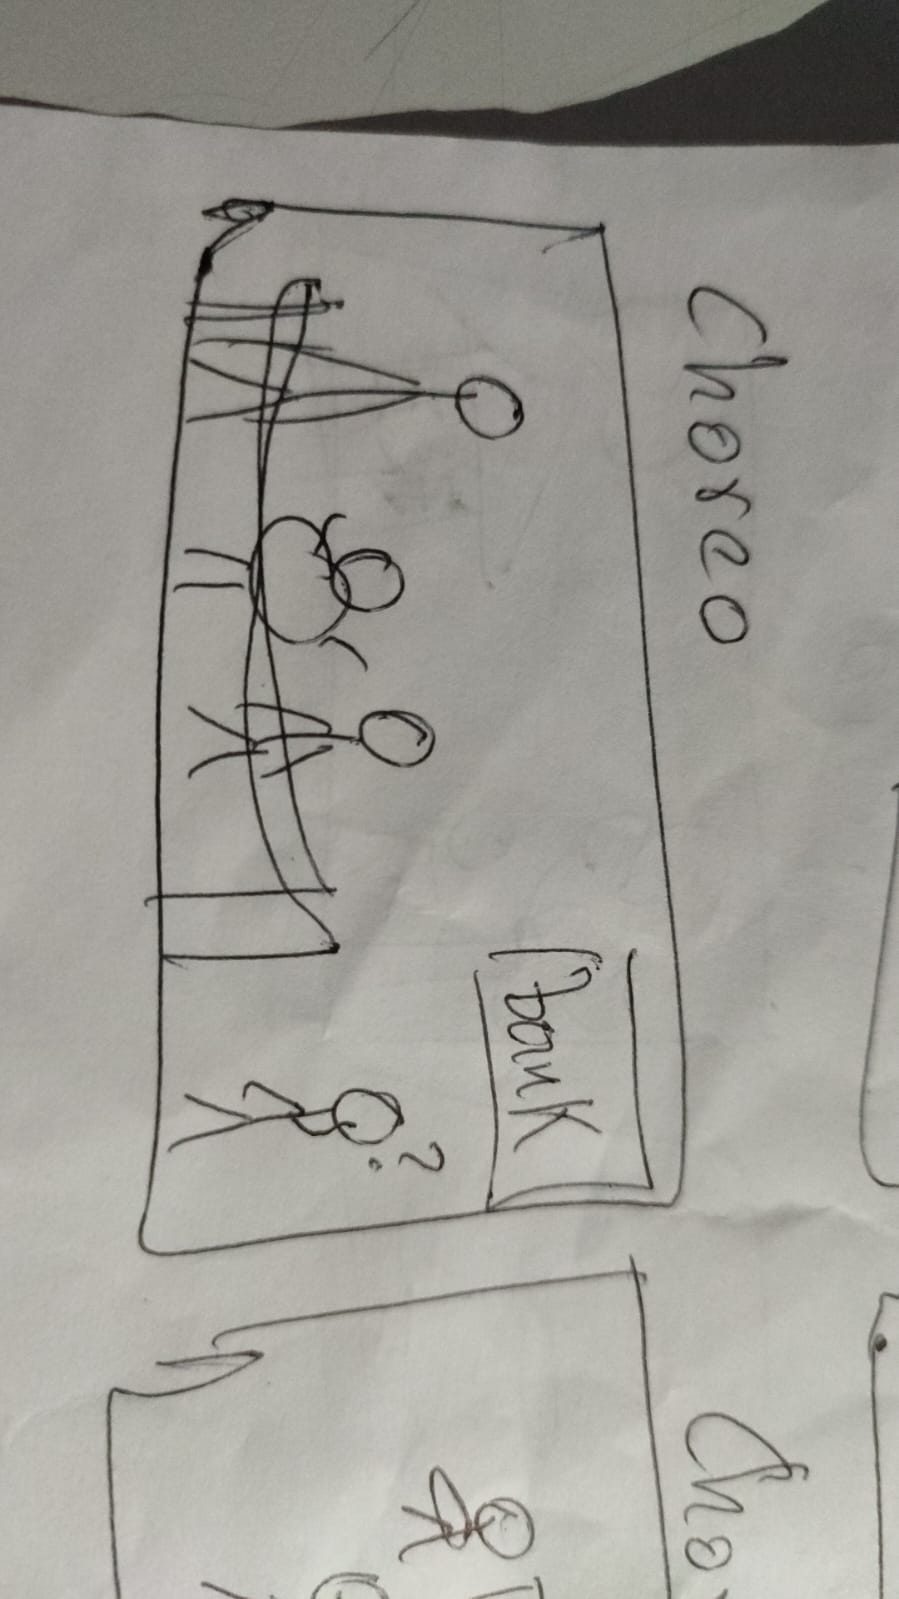 Choreo
Bank
?
Cho